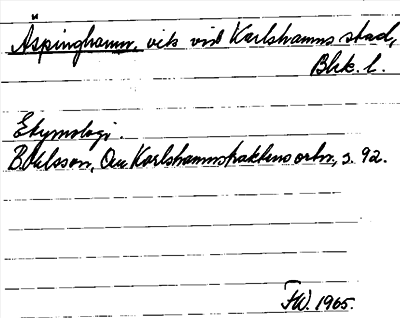 Äspinghamn, vik vid Karlshamns stad,
Blek. l.
Etymologi.
B. Ohlsson, Om Karlshamnstraktens ortn, s. 92.
FW. 1965.